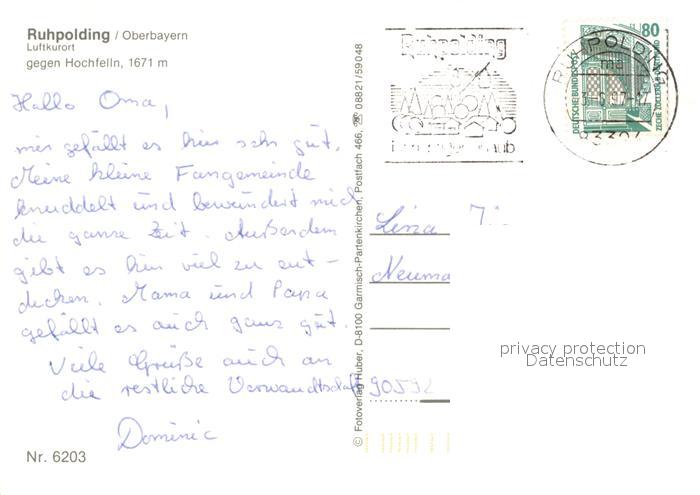 Ruhpolding / Oberbayern
Luftkurort
gegen Hochfelln, 1671 m
Hallo Oma,
mir gefällt es hier sehr gut.
Meine kleine Fangemeinde
knuddelt und bewundert mich
die ganze Zeit. Außerdem
gibt es hier viel zu ent-
decken. Mama und Papa
gefällt es auch ganz gut.
Viele Grüße auch an
die restliche Verwandtschaft
Dominic
Nr. 6203
© Fotoverlag Huber, D-8100 Garmisch-Partenkirchen, Postfach 466, ☎ 08821/59048
Ruhpolding
80
DEUTSCHE BUNDESPOST
ZECHE ZOLLERN II DORTMUND
RUHPOLDING
Neuma
90592
privacy protection
Datenschutz